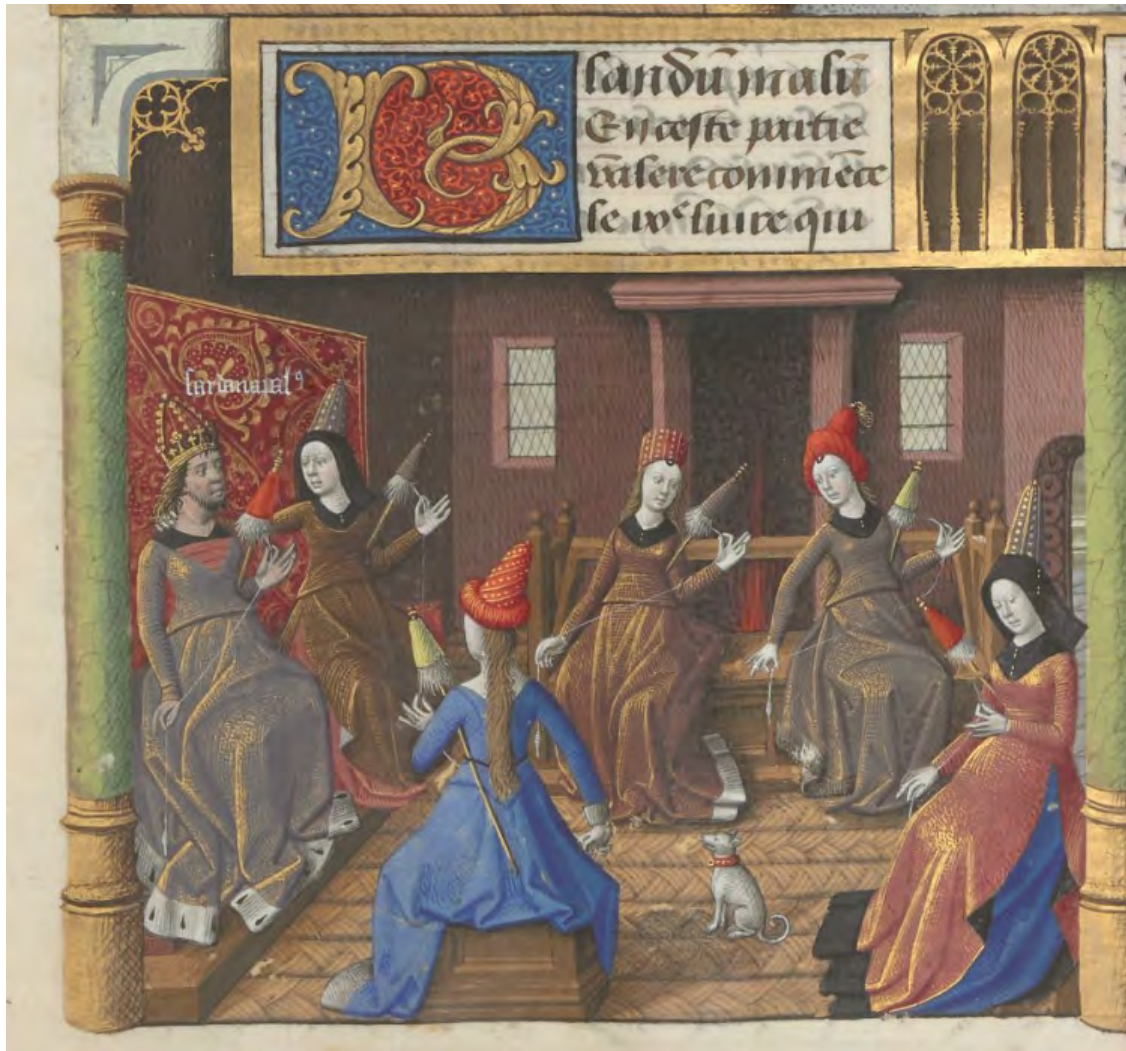 Blandũ malũ
En ceste partie
valere commẽce
le ixᵉ liure qui
sardanapalꝰ